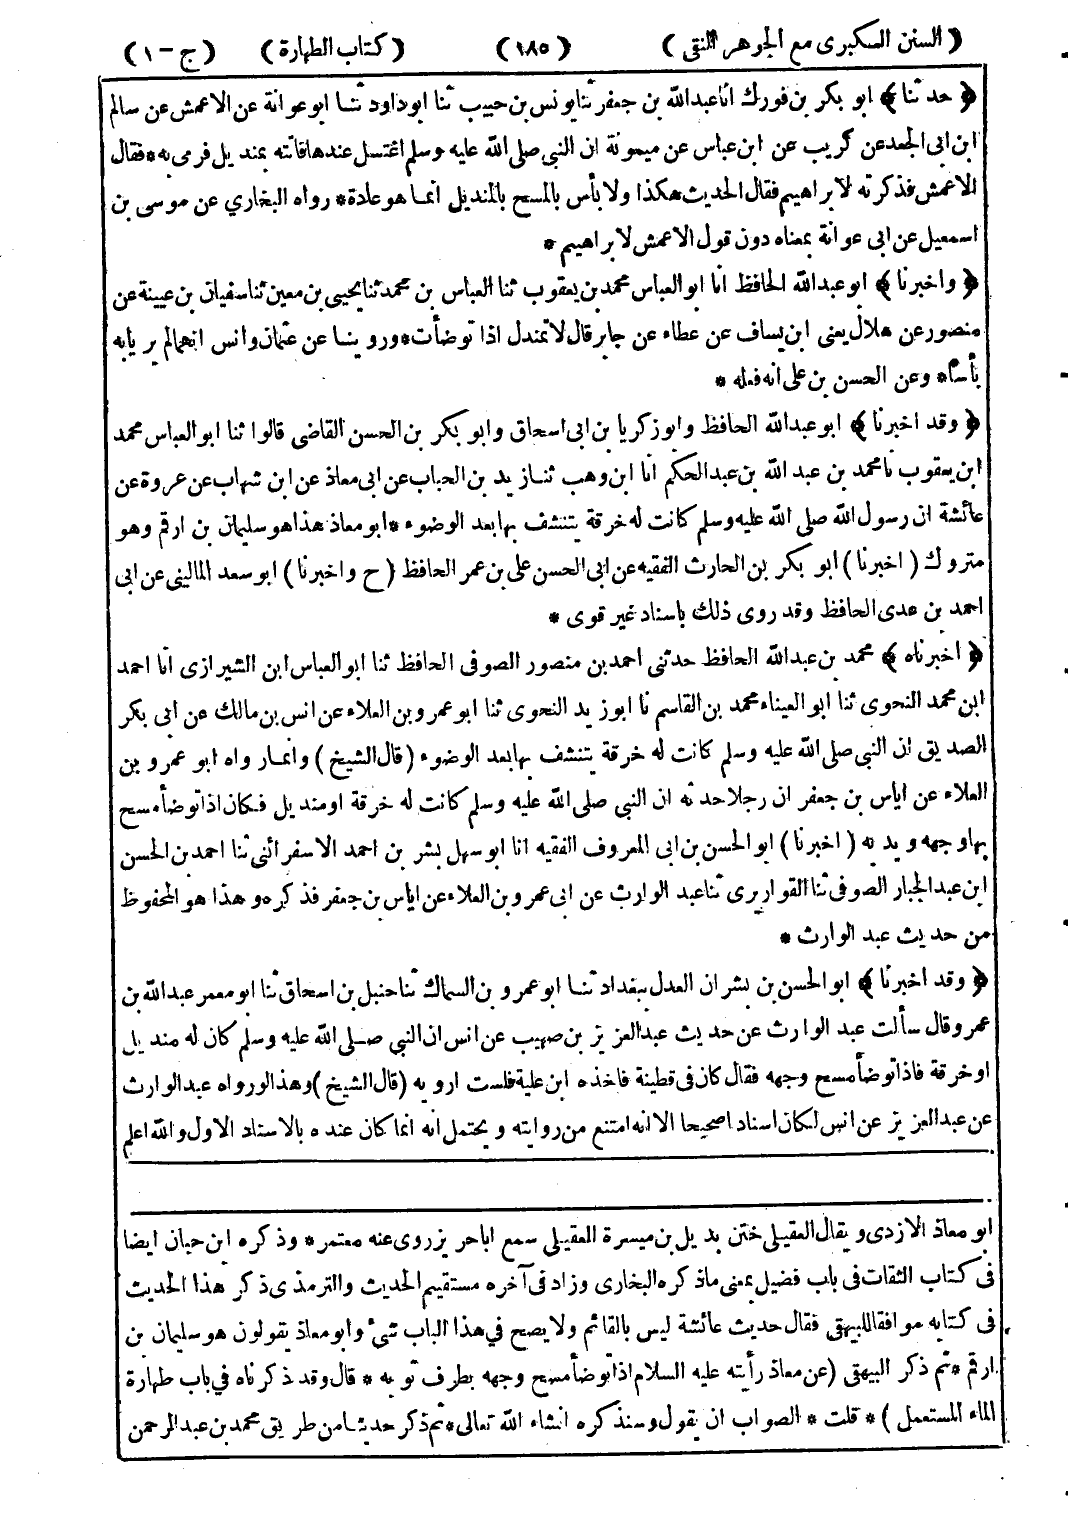 (السنن الكبرى مع الجوهر النقى) (١٨٥) (كتاب الطهارة) (ج-١)
﴿حدثنا﴾ ابو بكر بن فورك انا عبدالله بن جعفر ثنا يونس بن حبيب ثنا ابو داود ثنا ابو عوانة عن الاعمش عن سالم
ابن ابى الجعد عن كريب عن ابن عباس عن ميمونة ان النبى صلى الله عليه وسلم اغتسل عندها فاتته بمنديل فرمى به * فقال
الاعمش فذكرته لابراهيم فقال الحديث هكذا ولا بأس بالمسح بالمنديل انما هو عادة * رواه البخاري عن موسى بن
اسمعيل عن ابى عوانة بمعناه دون قول الاعمش لابراهيم *
﴿واخبرنا﴾ ابو عبدالله الحافظ انا ابو العباس محمد بن يعقوب ثنا العباس بن محمد ثنا يحيى بن معين ثنا سفيان بن عيينة عن
منصور عن هلال يعنى ابن يساف عن عطاء عن جابر قال لا تمندل اذا توضأت * وروينا عن عثمان وانس انهما لم يريا به
بأسا * وعن الحسن بن على انه فعله *
﴿وقد اخبرنا﴾ ابو عبدالله الحافظ وابو زكريا بن ابى اسحاق وابو بكر بن الحسن القاضى قالوا ثنا ابو العباس محمد
ابن يعقوب نا محمد بن عبد الله بن عبد الحكم انا ابن وهب ثنا زيد بن الحباب عن ابى معاذ عن ابن شهاب عن عروة عن
عائشة ان رسول الله صلى الله عليه وسلم كانت له خرقة يتنشف بها بعد الوضوء * ابو معاذ هذا هو سليمان بن ارقم وهو
متروك (اخبرنا) ابو بكر بن الحارث الفقيه عن ابى الحسن على بن عمر الحافظ (ح واخبرنا) ابو سعد المالينى عن ابى
احمد بن عدى الحافظ وقد روى ذلك باسناد غير قوى *
﴿اخبرناه﴾ محمد بن عبدالله الحافظ حدثنى احمد بن منصور الصوفى الحافظ ثنا ابو العباس ابن الشيرازى انا احمد
ابن محمد النحوى ثنا ابو العيناء محمد بن القاسم نا ابو زيد النحوى ثنا ابو عمرو بن العلاء عن انس بن مالك عن ابى بكر
الصديق ان النبى صلى الله عليه وسلم كانت له خرقة يتنشف بها بعد الوضوء (قال الشيخ) وانما رواه ابو عمرو بن
العلاء عن اياس بن جعفر ان رجلا حدثه ان النبى صلى الله عليه وسلم كانت له خرقة او منديل فكان اذا توضأ مسح
بها وجهه ويديه (اخبرنا) ابو الحسن بن ابى المعروف الفقيه انا ابو سهل بشر بن احمد الاسفرائنى ثنا احمد بن الحسن
ابن عبد الجبار الصوفى ثنا القواريرى ثنا عبد الوارث عن ابى عمرو بن العلاء عن اياس بن جعفر فذكره وهذا هو المحفوظ
من حديث عبد الوارث *
﴿وقد اخبرنا﴾ ابو الحسن بن بشران العدل ببغداد ثنا ابو عمرو بن السماك ثنا حنبل بن اسحاق ثنا ابو معمر عبدالله بن
عمرو قال سألت عبد الوارث عن حديث عبدالعزيز بن صهيب عن انس ان النبي صلى الله عليه وسلم كان له منديل
او خرقة فاذا توضأ مسح وجهه فقال كان فى قطينة فاخذه ابن علية فلست ارويه (قال الشيخ) وهذا لو رواه عبد الوارث
عن عبد العزيز عن انس لكان اسنادا صحيحا الا انه امتنع من روايته ويحتمل انه انما كان عنده بالاسناد الاول والله اعلم
ابو معاذ الازدى ويقال العقيلى ختن بديل بن ميسرة العقيلى سمع ابا حريز روى عنه معتمر * وذكره ابن حبان ايضا
فى كتاب الثقات فى باب فضيل بمعنى ما ذكره البخارى وزاد فى آخره مستقيم الحديث والترمذى ذكر هذا الحديث
فى كتابه موافقا للبيهقى فقال حديث عائشة ليس بالقائم ولا يصح في هذا الباب شئ وابو معاذ يقولون هو سليمان بن
ارقم * ثم ذكر البيهقى (عن معاذ رأيته عليه السلام اذا توضأ مسح وجهه بطرف ثوبه * قال وقد ذكرناه في باب طهارة
الماء المستعمل) * قلت * الصواب ان يقول وسنذكره انشاء الله تعالى * ثم ذكر حديثا من طريق محمد بن عبد الرحمن